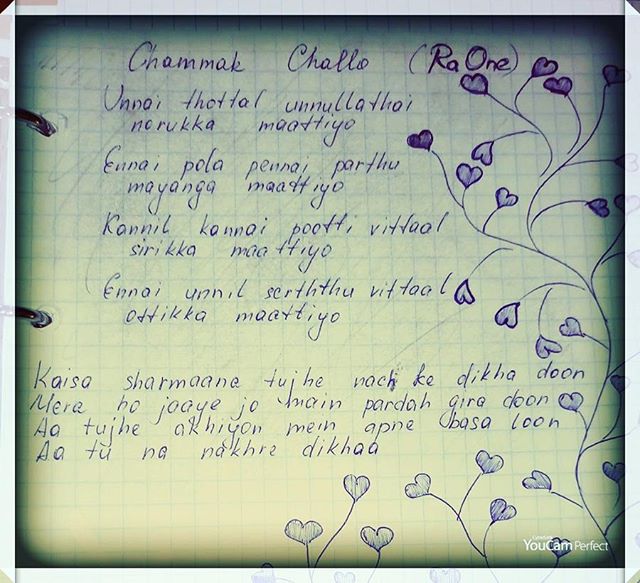 Chammak Challo (Ra One)
Unnai thottal unnullathai
norukka maattiyo
Ennai pola pennai parthu
mayanga maattiyo
Kannil kannai pootti vittaal
sirikka maattiyo
Ennai unnil serththu vittaal
ottikka maattiyo
Kaisa sharmaana tujhe nach ke dikha doon
Mera ho jaaye jo main pardah gira doon
Aa tujhe akhiyon mein apne basa loon
Aa tu na nakhre dikhaa
CyberLink
YouCam Perfect